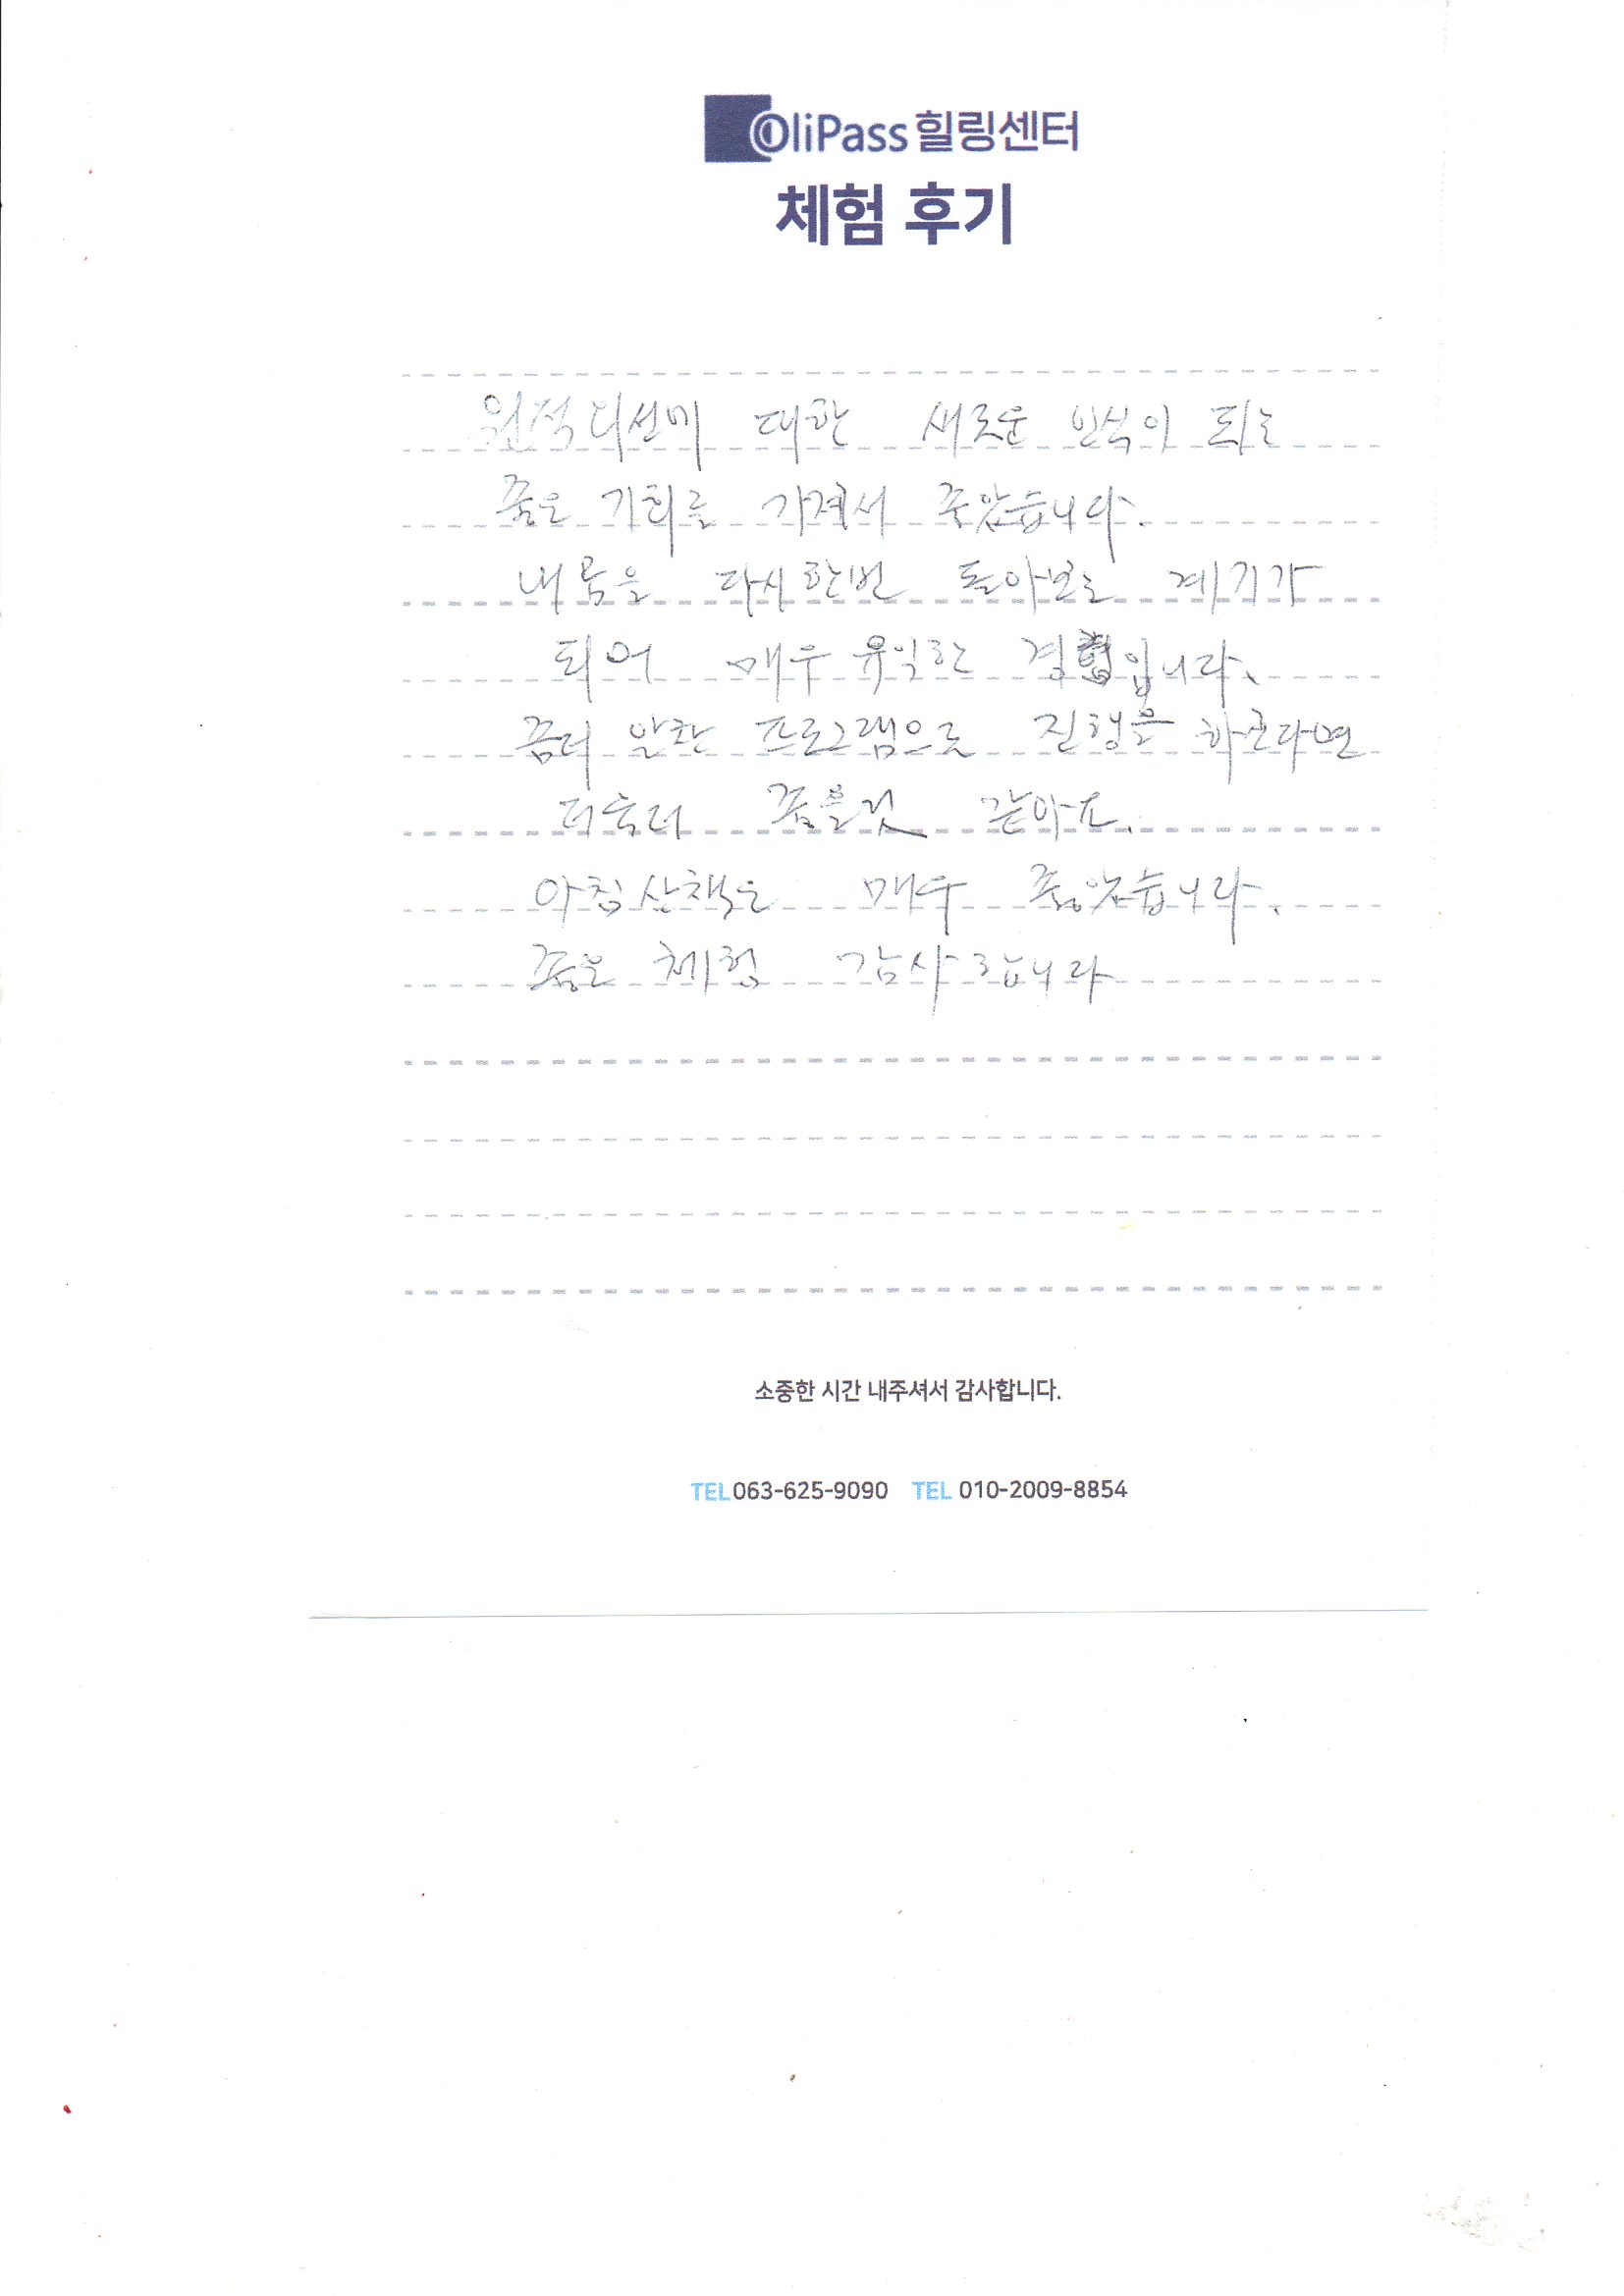 OliPass 힐링센터
체험 후기
원적외선에 대한 새로운 인식이 되는
좋은 기회를 가져서 좋았습니다.
내 몸을 다시한번 돌아보는 계기가
되어 매우 유익한 경험입니다.
좀더 알찬 프로그램으로 진행을 한다면
더욱더 좋을것 같아요.
아침산책은 매우 좋았습니다.
좋은 체험 감사합니다
소중한 시간 내주셔서 감사합니다.
TEL 063-625-9090 TEL 010-2009-8854